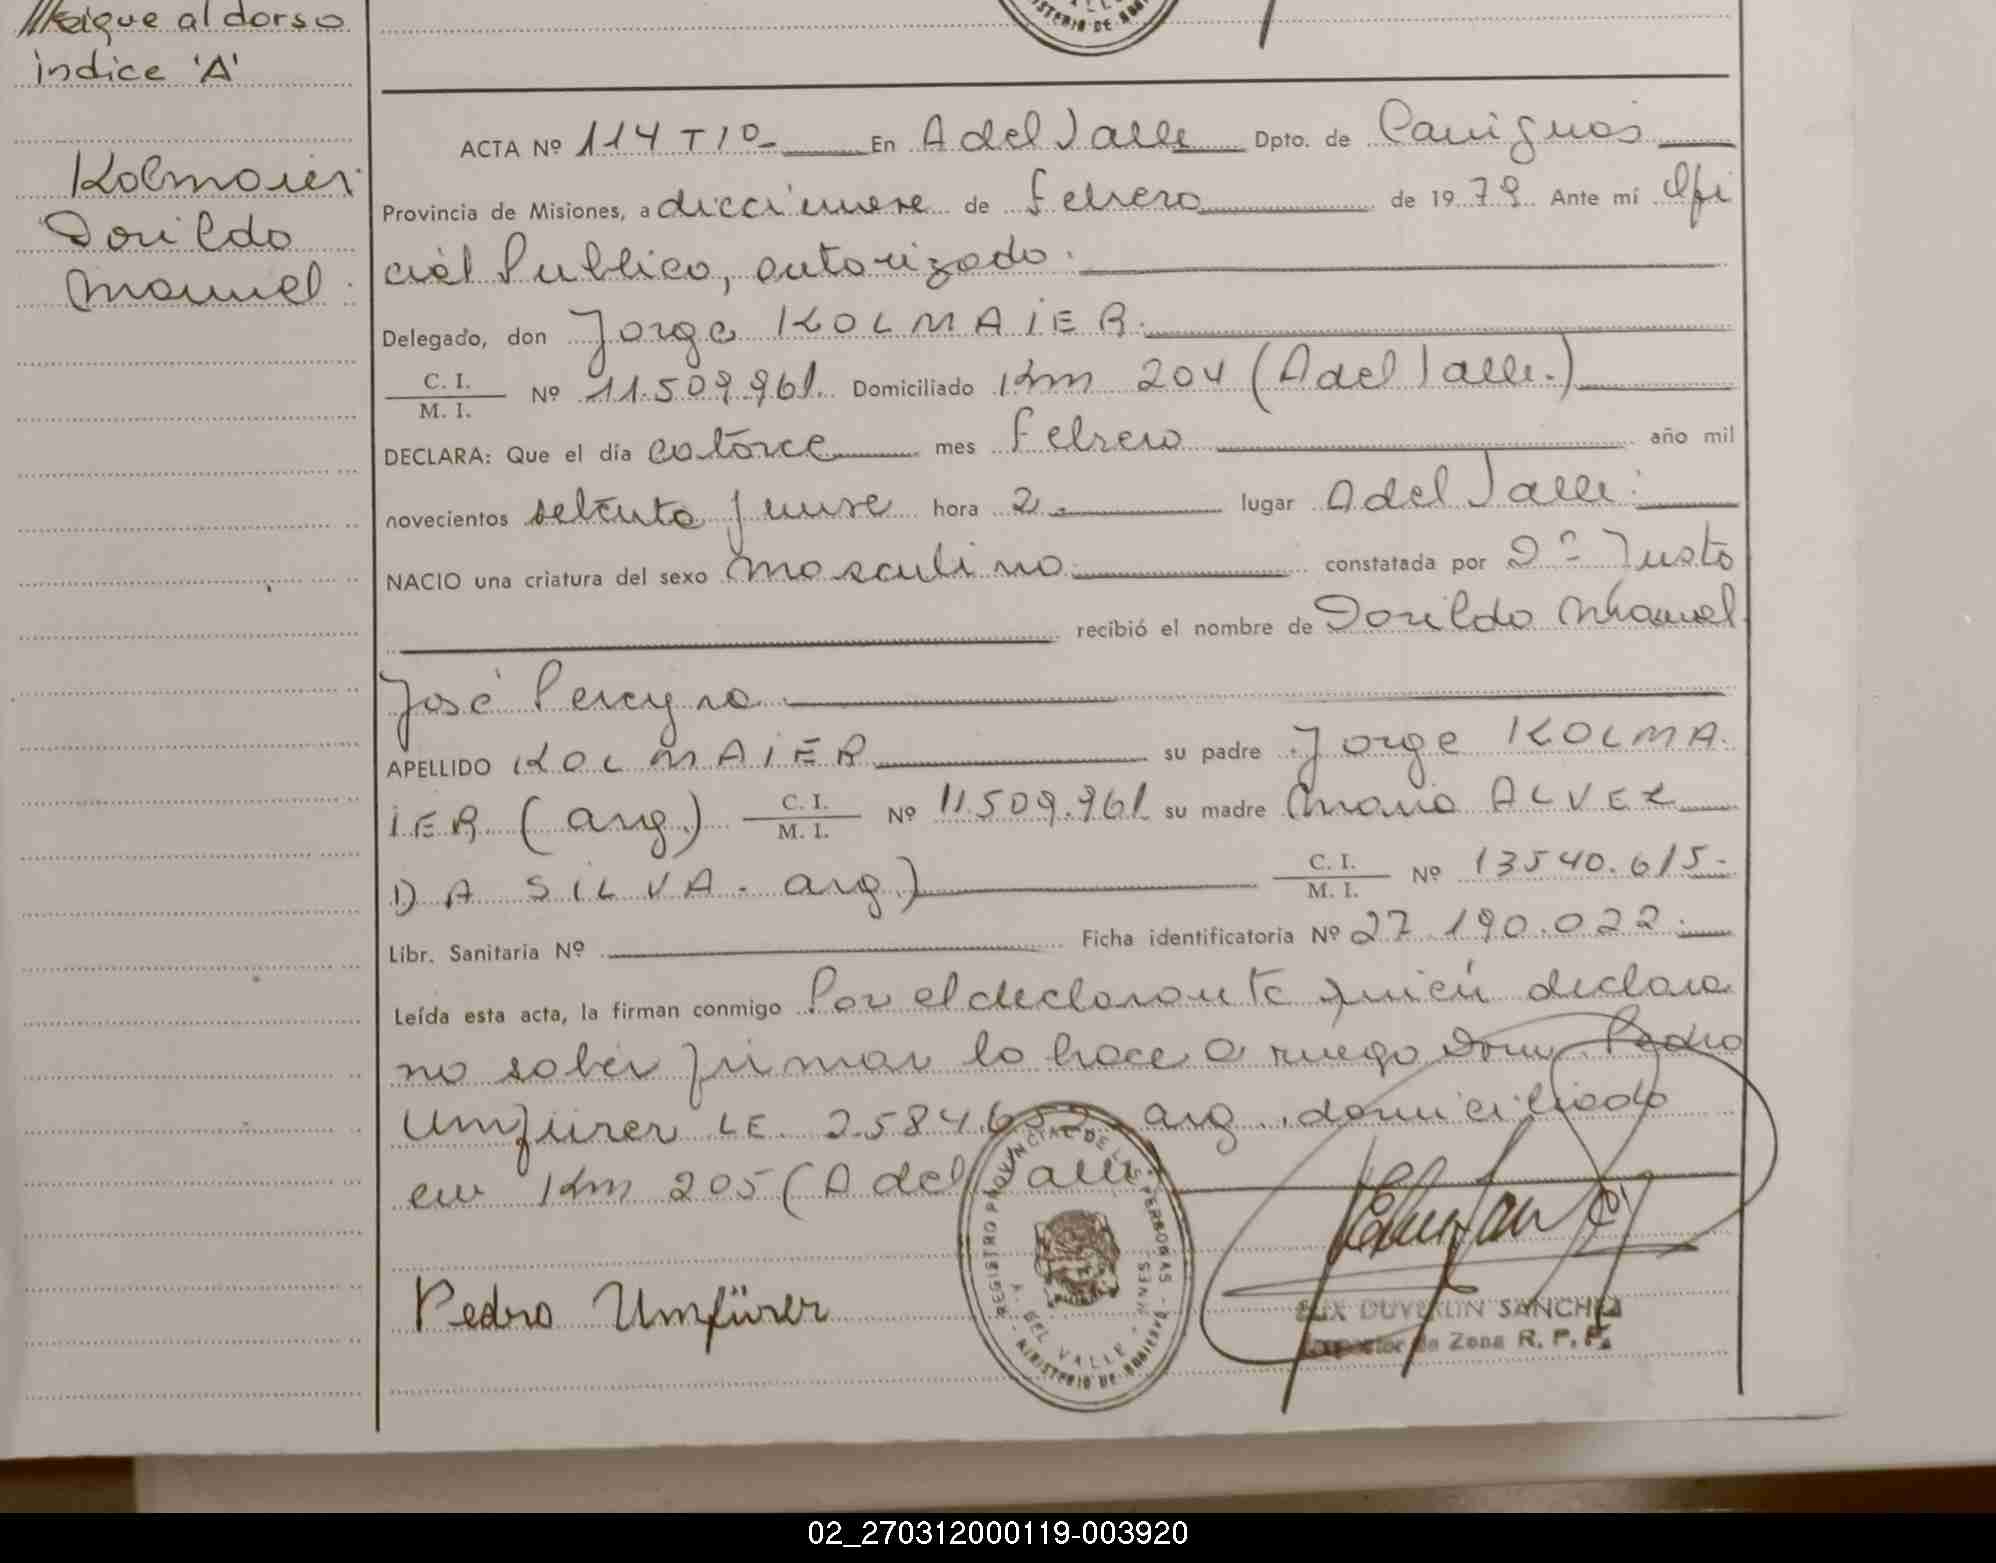 sigue al dorso
indice 'A'
Kolmaier
Dorildo
Manuel
MINISTERIO DE
ACTA Nº 114 Tº 1º En A del Valle Dpto. de Cainguas
Provincia de Misiones, a diecinueve de Febrero de 1979 Ante mí Ofi
cial Publico, autorizado.
Delegado, don Jorge KOLMAIER.
C. I. / M. I. Nº 11.509.961. Domiciliado Km 204 (A del Valle.)
DECLARA: Que el día catorce mes Febrero año mil
novecientos setenta y nueve hora 2. lugar A del Valle.
NACIO una criatura del sexo masculino constatada por Justo
recibió el nombre de Dorildo Manuel
José Pereyra
APELLIDO KOLMAIER su padre Jorge KOLMA
IER (arg.) C. I. / M. I. Nº 11.509.961 su madre Maria ALVEZ
DA SILVA. arg.) C. I. / M. I. Nº 13540.615.
Libr. Sanitaria Nº Ficha identificatoria Nº 27 190.022.
Leída esta acta, la firman conmigo Por el declarante quien declara
no saber firmar lo hace a ruego Don Pedro
Umfürer LE. 2.584.65 arg. domiciliado
en Km 205 (A del Valle
Pedro Umfürer
REGISTRO PROVINCIAL DE LAS PERSONAS
A. DEL VALLE - MNES
MINISTERIO DE GOBIERNO
SANCHEZ
Inspector de Zona R. P. P.
02_270312000119-003920